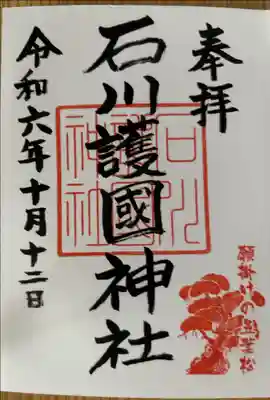 奉拝
石川護國神社
令和六年十月十二日
石川
護國
神社
願掛けの